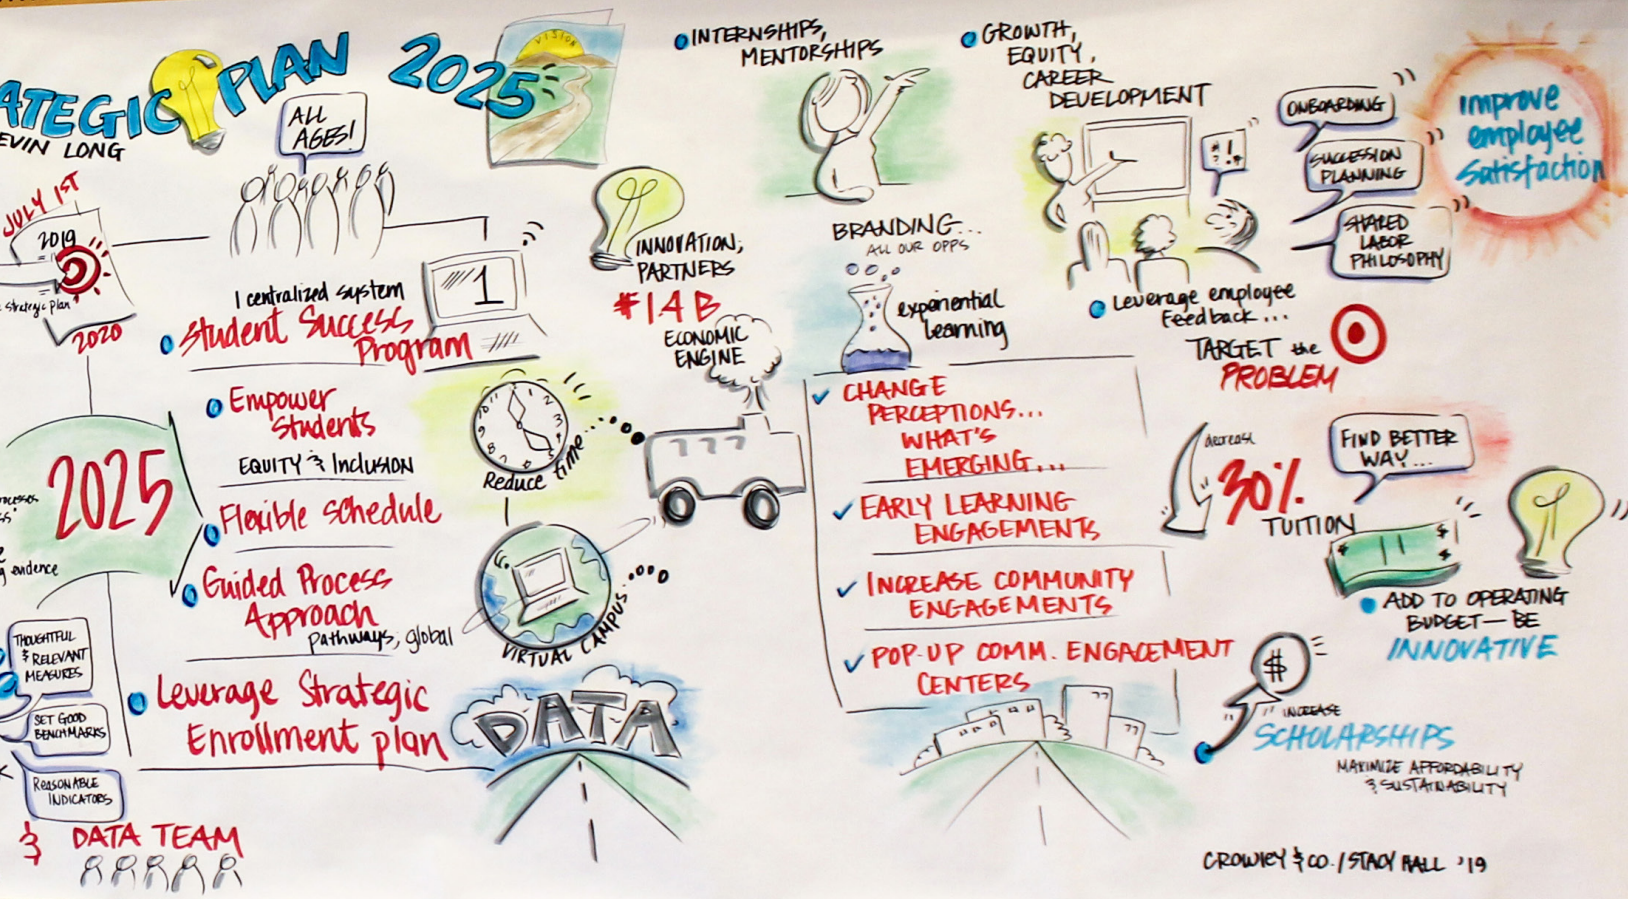 ATEGIC PLAN 2025
EVIN LONG
VISION
ALL
AGES!
JULY 1ST
2019
strategic plan"
2020
1 centralized system
Student Success
Program
1
Empower
Students
EQUITY & Inclusion
Flexible schedule
Guided Process
Approach
pathways, global
Leverage Strategic
Enrollment plan
2025
ocesses
ss"
g evidence
THOUGHTFUL
& RELEVANT
MEASURES
SET GOOD
BENCHMARKS
REASONABLE
INDICATORS
& DATA TEAM
INNOVATION,
PARTNERS
#14B
ECONOMIC
ENGINE
Reduce time...
VIRTUAL CAMPUS...
DATA
INTERNSHIPS,
MENTORSHIPS
BRANDING...
ALL OUR OPPS
experiential
learning
CHANGE
PERCEPTIONS...
WHAT'S
EMERGING...
EARLY LEARNING
ENGAGEMENTS
INCREASE COMMUNITY
ENGAGEMENTS
POP-UP COMM. ENGAGEMENT
CENTERS
GROWTH,
EQUITY,
CAREER
DEVELOPMENT
ONBOARDING
SUCCESSION
PLANNING
SHARED
LABOR
PHILOSOPHY
Improve
employee
Satisfaction
Leverage employee
Feedback...
TARGET the
PROBLEM
decrease
30%
TUITION
FIND BETTER
WAY...
ADD TO OPERATING
BUDGET—BE
INNOVATIVE
$
INCREASE
SCHOLARSHIPS
MAXIMIZE AFFORDABILITY
& SUSTAINABILITY
CROWLEY & CO./STACY HALL '19